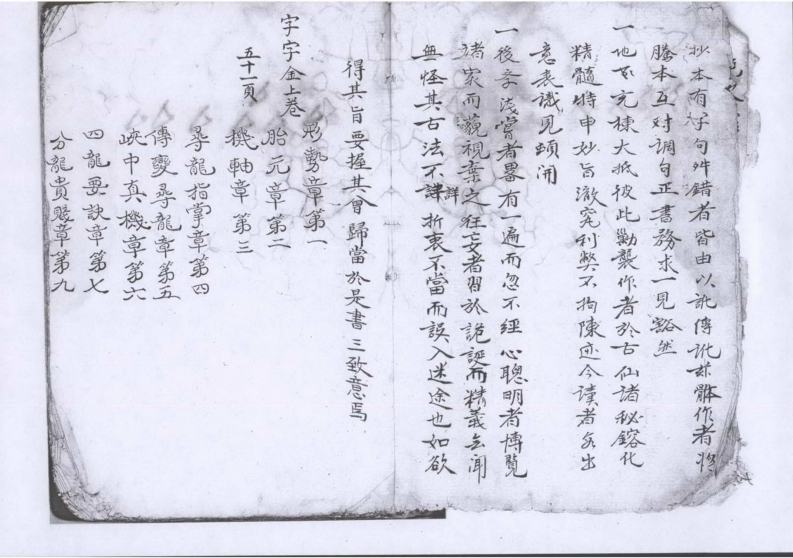 抄本有字句舛錯者皆由以訛傳訛茲骵作者將
謄本互對調句正書務求一見豁然
一地書充棟大抵彼此勦襲作者於古仙諸秘鎔化
精髓特申妙旨澈究利弊不拘陳迹令讀者另出
意表識見頓開
一後李淺嘗者畧有一遍而忽不經心聰明者博覽
諸家而藐視棄之狂妄者習於詭誕而精義無聞
無怪其古法不詳折衷不當而誤入迷途也如欲
詳
得其旨要握其會歸當於是書三致意焉
字字金上卷
五十一頁
形勢章第一
胎元章第二
機軸章第三
尋龍指掌章第四
傳變尋龍章第五
峽中真機章第六
四龍要訣章第七
分龍貴賤章第九